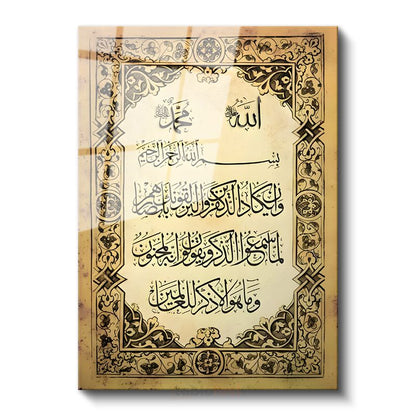 الله ﷻ محمد ﷺ
بسم الله الرحمن الرحيم
وإن يكاد الذين كفروا ليزلقونك بأبصارهم
لما سمعوا الذكر ويقولون إنه لمجنون
وما هو إلا ذكر للعالمين